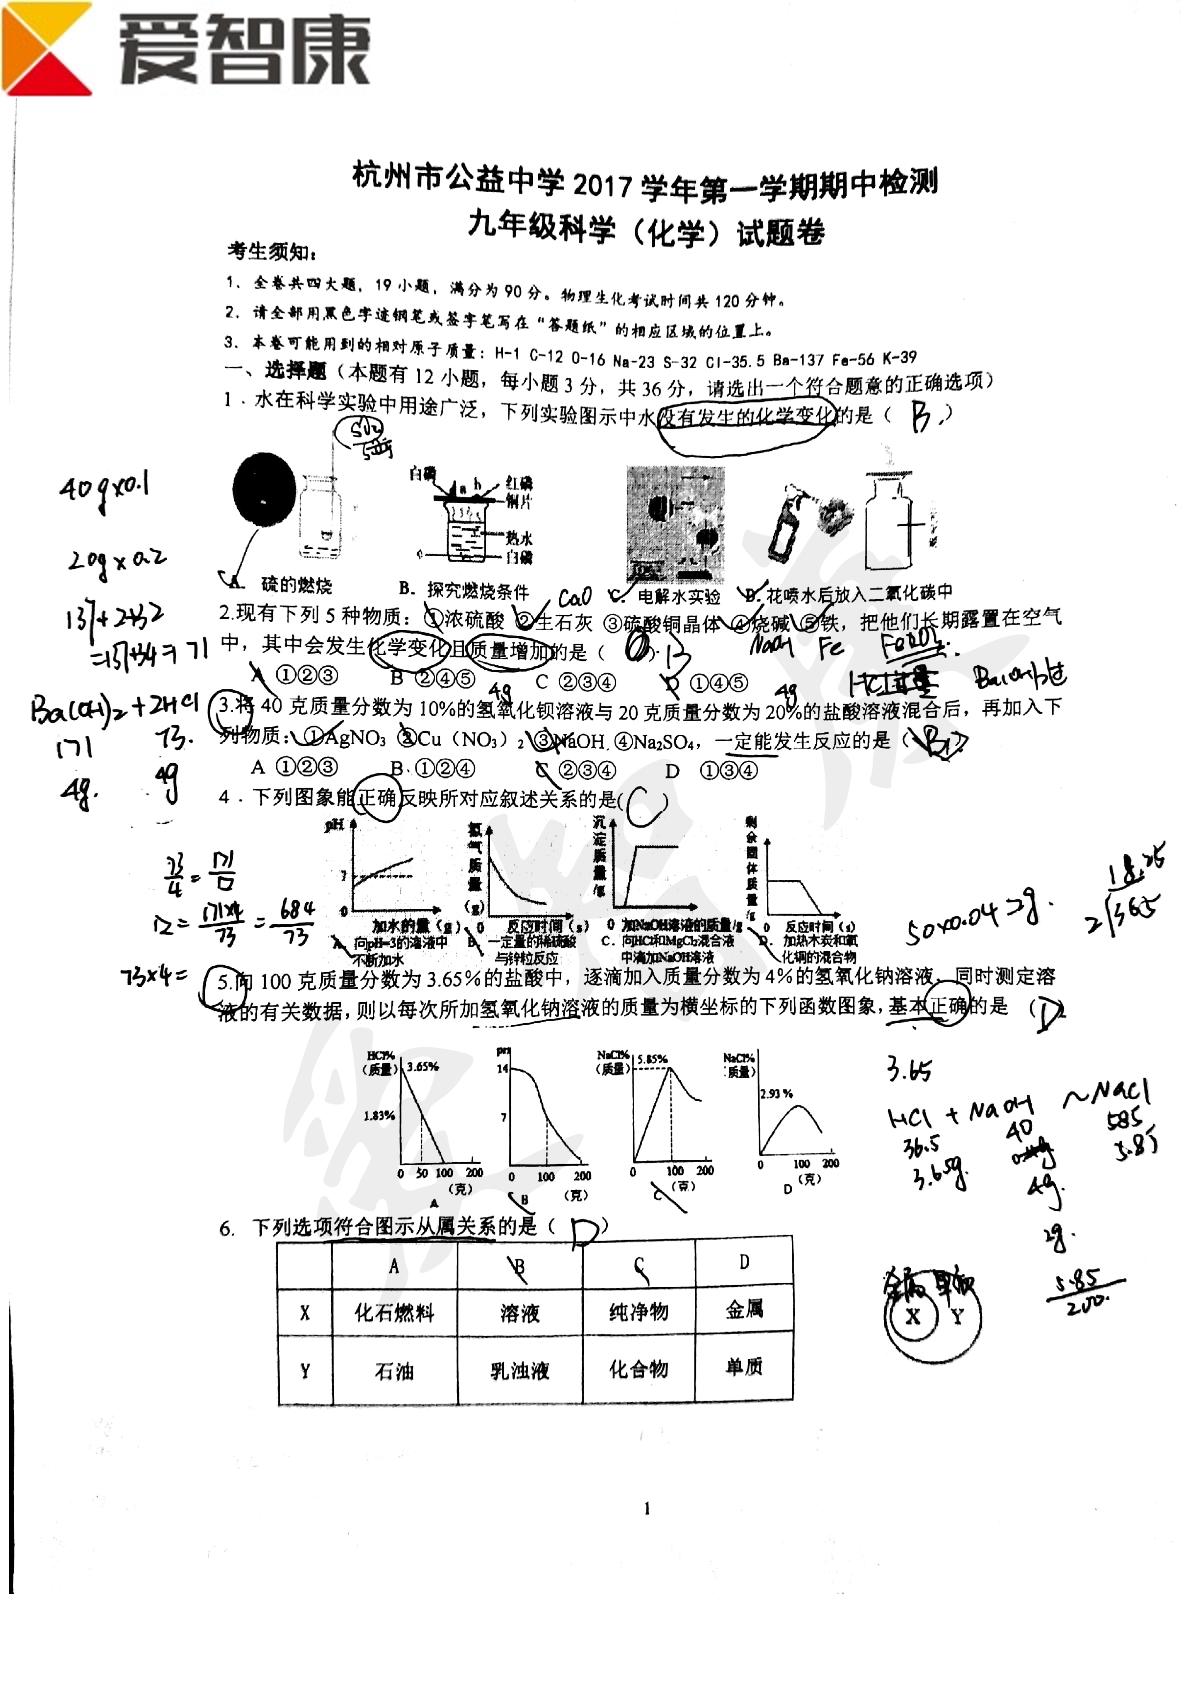 爱智康
杭州市公益中学 2017 学年第一学期期中检测
九年级科学（化学）试题卷
考生须知：
1．全卷共四大题，19 小题，满分为 90 分。物理生化考试时间共 120 分钟。
2．请全部用黑色字迹钢笔或签字笔写在“答题纸”的相应区域的位置上。
3．本卷可能用到的相对原子质量：H-1 C-12 O-16 Na-23 S-32 Cl-35.5 Ba-137 Fe-56 K-39
一、选择题（本题有 12 小题，每小题 3 分，共 36 分，请选出一个符合题意的正确选项）
1．水在科学实验中用途广泛，下列实验图示中水没有发生的化学变化的是（ B ）
SO2
40g×0.1
20g×0.2
白磷 a b 红磷
铜片
热水
白磷
A. 硫的燃烧 B. 探究燃烧条件 C. 电解水实验 D. 花喷水后放入二氧化碳中
CaO
2.现有下列 5 种物质：①浓硫酸 ②生石灰 ③硫酸铜晶体 ④烧碱 ⑤铁，把他们长期露置在空气
中，其中会发生化学变化且质量增加的是（ B ）
NaOH Fe
A ①②③ B ②④⑤ C ②③④ D ①④⑤
137+2+32
=137+34=171
Ba(OH)2+2HCl
171 73.
4g. 4g
4g 4g
3.将 40 克质量分数为 10%的氢氧化钡溶液与 20 克质量分数为 20%的盐酸溶液混合后，再加入下
列物质：①AgNO₃ ②Cu（NO₃）₂ ③NaOH ④Na₂SO₄，一定能发生反应的是（ B ）
A ①②③ B ①②④ C ②③④ D ①③④
4．下列图象能正确反映所对应叙述关系的是( C )
pH 7 0 加水的量（g）
氢气质量（g） 0 反应时间（s）
沉淀质量/g 0 加NaOH溶液的质量/g
剩余固体质量/g 0 反应时间（s）
A. 向pH=3的溶液中不断加水
B. 一定量的稀硫酸与锌粒反应
C. 向HCl和MgCl₂混合液中滴加NaOH溶液
D. 加热木炭和氧化铜的混合物
73/4=171/□
□=171×4/73=684/73
73×4=
50×0.04 2g.
18.25
2 365
5.向 100 克质量分数为 3.65%的盐酸中，逐滴加入质量分数为 4%的氢氧化钠溶液，同时测定溶
液的有关数据，则以每次所加氢氧化钠溶液的质量为横坐标的下列函数图象，基本正确的是（ D ）
HCl%（质量） 3.65% 1.83% 0 50 100 200（克） A
pH 14 7 0 100 200（克） B
NaCl%（质量） 5.85% 0 100 200（克） C
NaCl%（质量） 2.93% 0 100 200（克） D
3.65
HCl + NaOH ~ NaCl
36.5 40 585
3.65g. 4g. 5.85
2g.
5.85/200.
6. 下列选项符合图示从属关系的是（ D ）
A B C D
X 化石燃料 溶液 纯净物 金属
Y 石油 乳浊液 化合物 单质
金属 单质
X Y
1